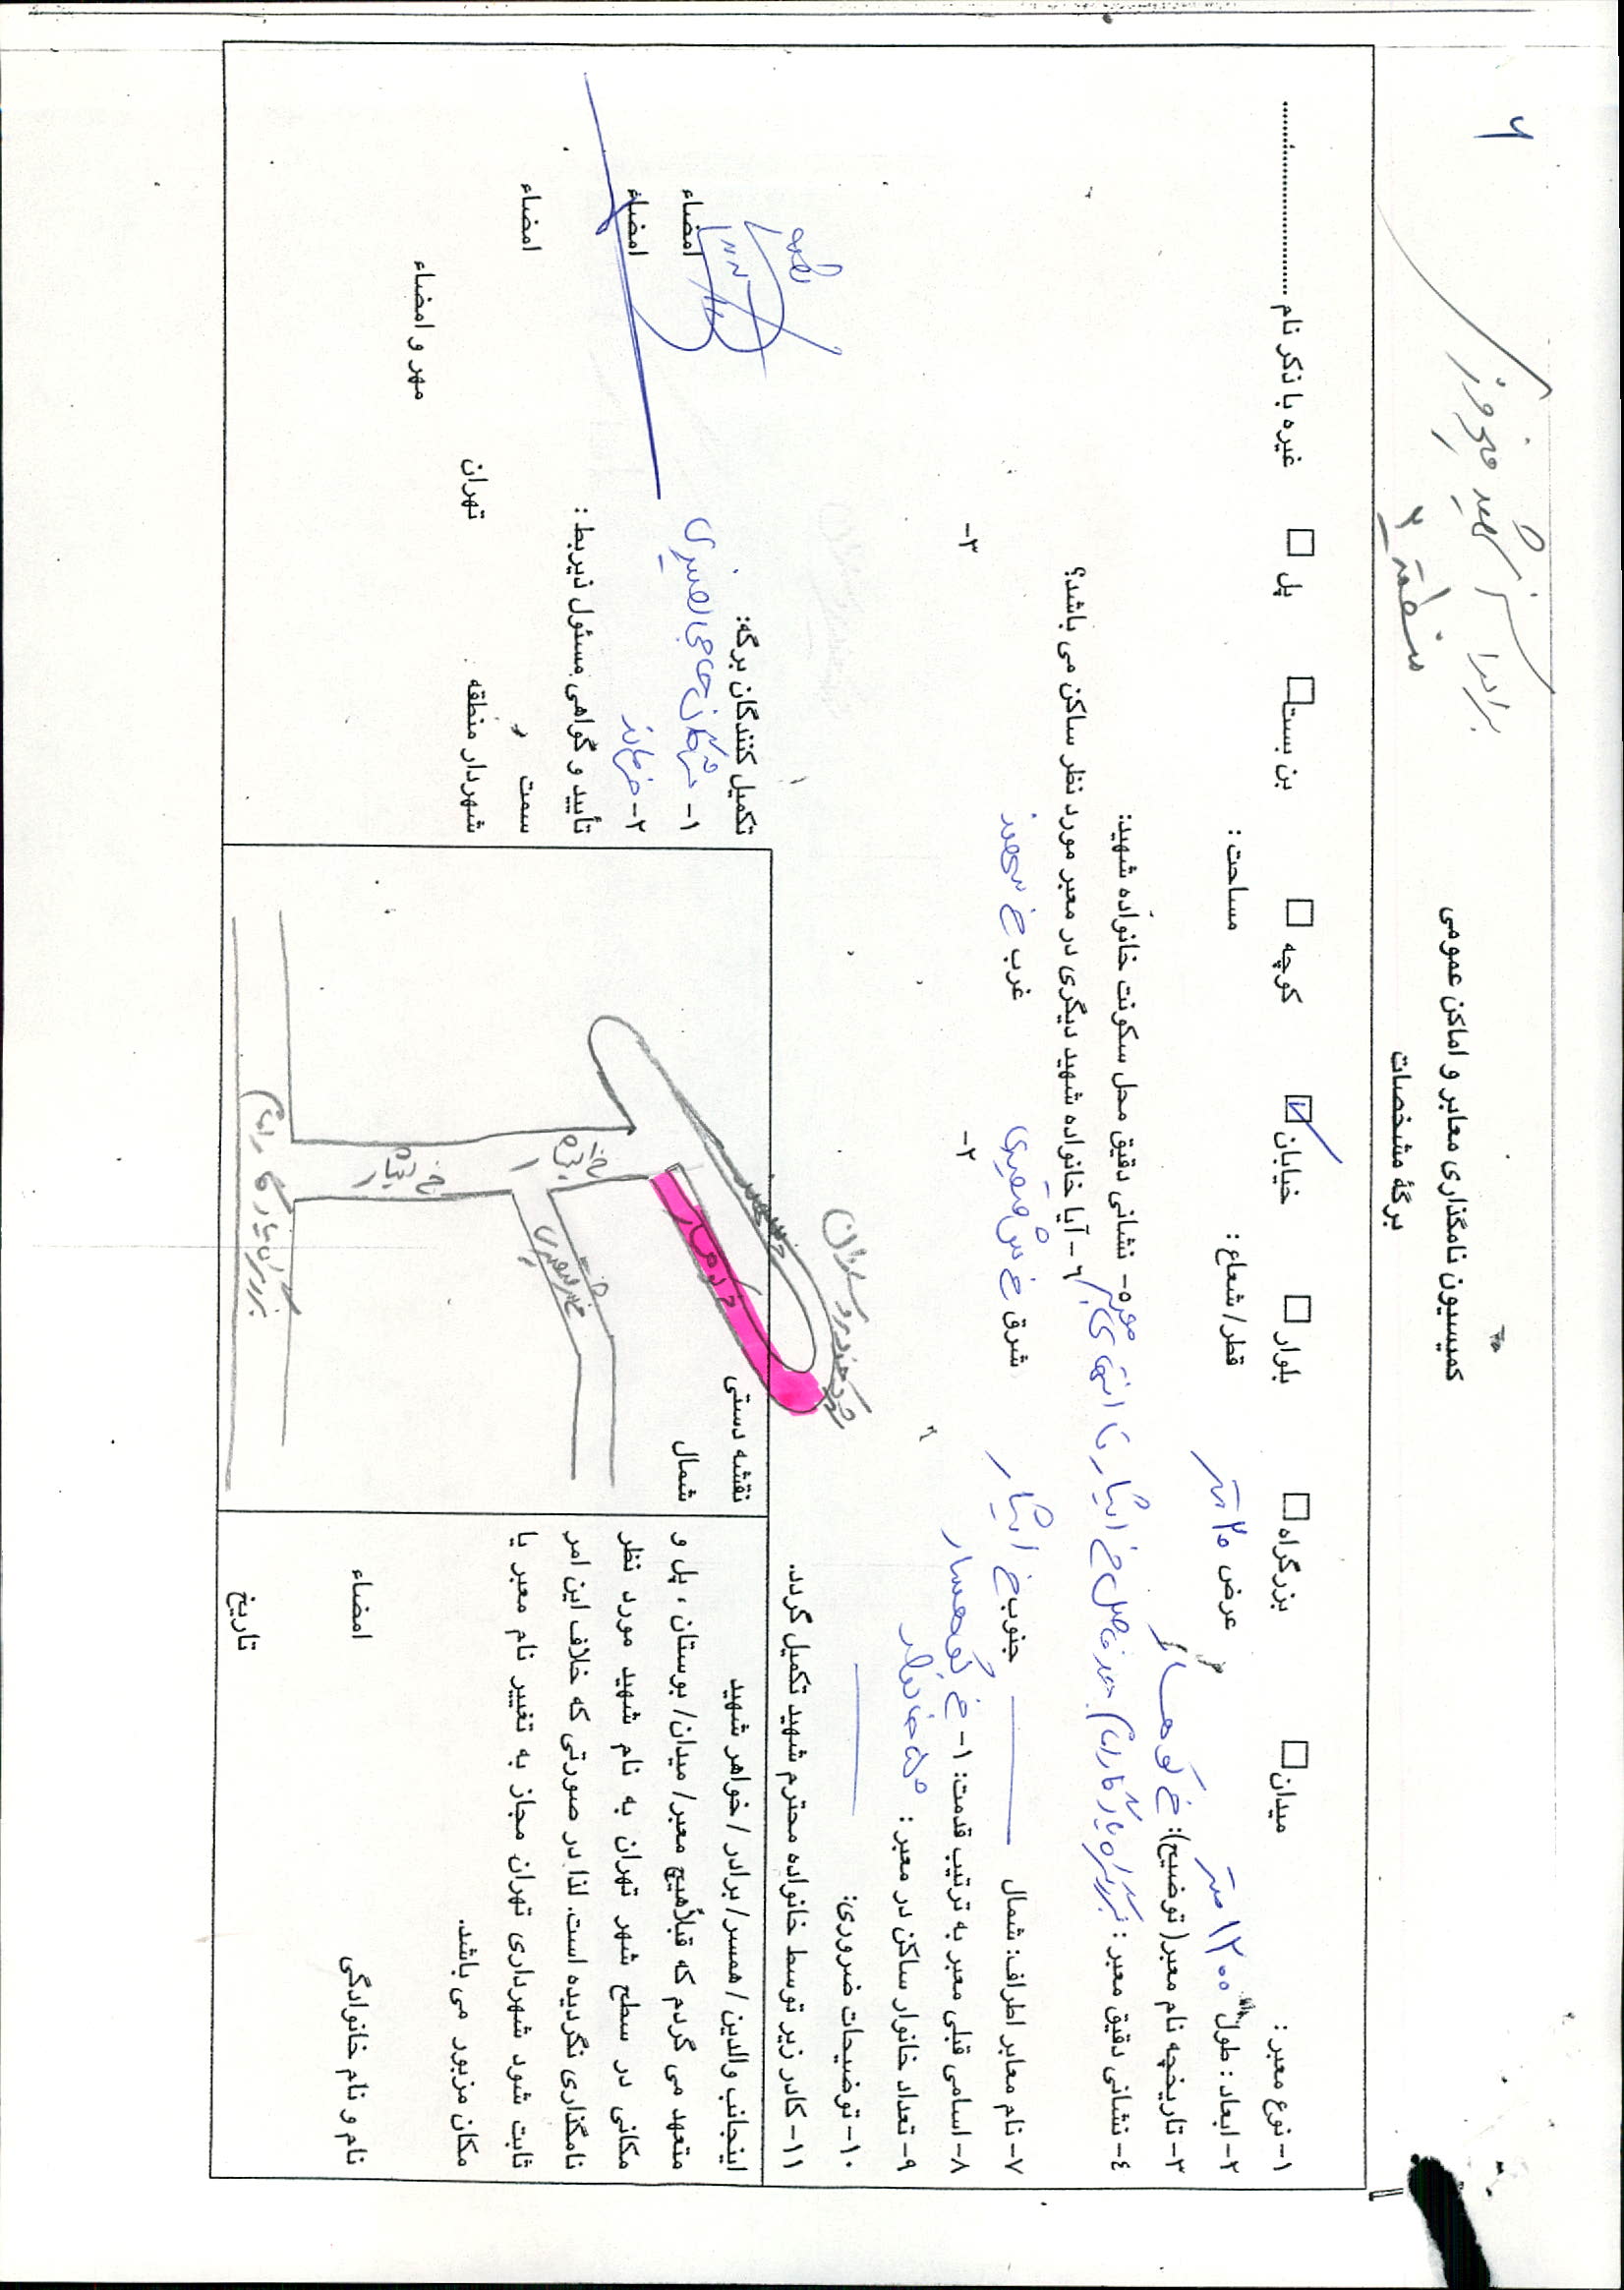 ۶
برادران شهید فیروز
منطقه ۲
کمیسیون نامگذاری معابر و اماکن عمومی
برگهٔ مشخصات
۱- نوع معبر : میدان بزرگراه بلوار خیابان کوچه بن بست پل غیره با ذکر نام ........................
۲- ابعاد : طول ۱۲۰۰ متر عرض ۲۰ متر قطر/ شعاع : مساحت :
۳- تاریخچه نام معبر( توضیح): خ کوهسار
۴- نشانی دقیق معبر : بزرگراه یادگار امام حد فاصل خ ایثار تا انتهای معبر ۵- نشانی دقیق محل سکونت خانواده شهید:
۶- آیا خانواده شهید دیگری در معبر مورد نظر ساکن می باشد؟
۷- نام معابر اطراف: شمال جنوب خ ایثار شرق خ غرب خ
۸- اسامی قبلی معبر به ترتیب قدمت: ۱- خ کوهسار ۲- ۳-
۹- تعداد خانوار ساکن در معبر : خانوار
۱۰- توضیحات ضروری:
۱۱- کادر زیر توسط خانواده محترم شهید تکمیل گردد.
اینجانب والدین / همسر/ برادر / خواهر شهید
متعهد می گردم که قبلاًهیچ معبر/ میدان/ بوستان ، پل و
مکانی در سطح شهر تهران به نام شهید مورد نظر
نامگذاری نگردیده است. لذا در صورتی که خلاف این امر
ثابت شود شهرداری تهران مجاز به تغییر نام معبر یا
مکان مزبور می باشد.
نام و نام خانوادگی امضاء
تاریخ
نقشه دستی
شمال
خ کوهسار
خ ایثار
خ ایثار
بزرگراه یادگار امام
تکمیل کنندگان برگه:
۱- امضاء
۲- امضاء
تأیید و گواهی مسئول ذیربط :
سمت امضاء
شهردار منطقه تهران
مهر و امضاء